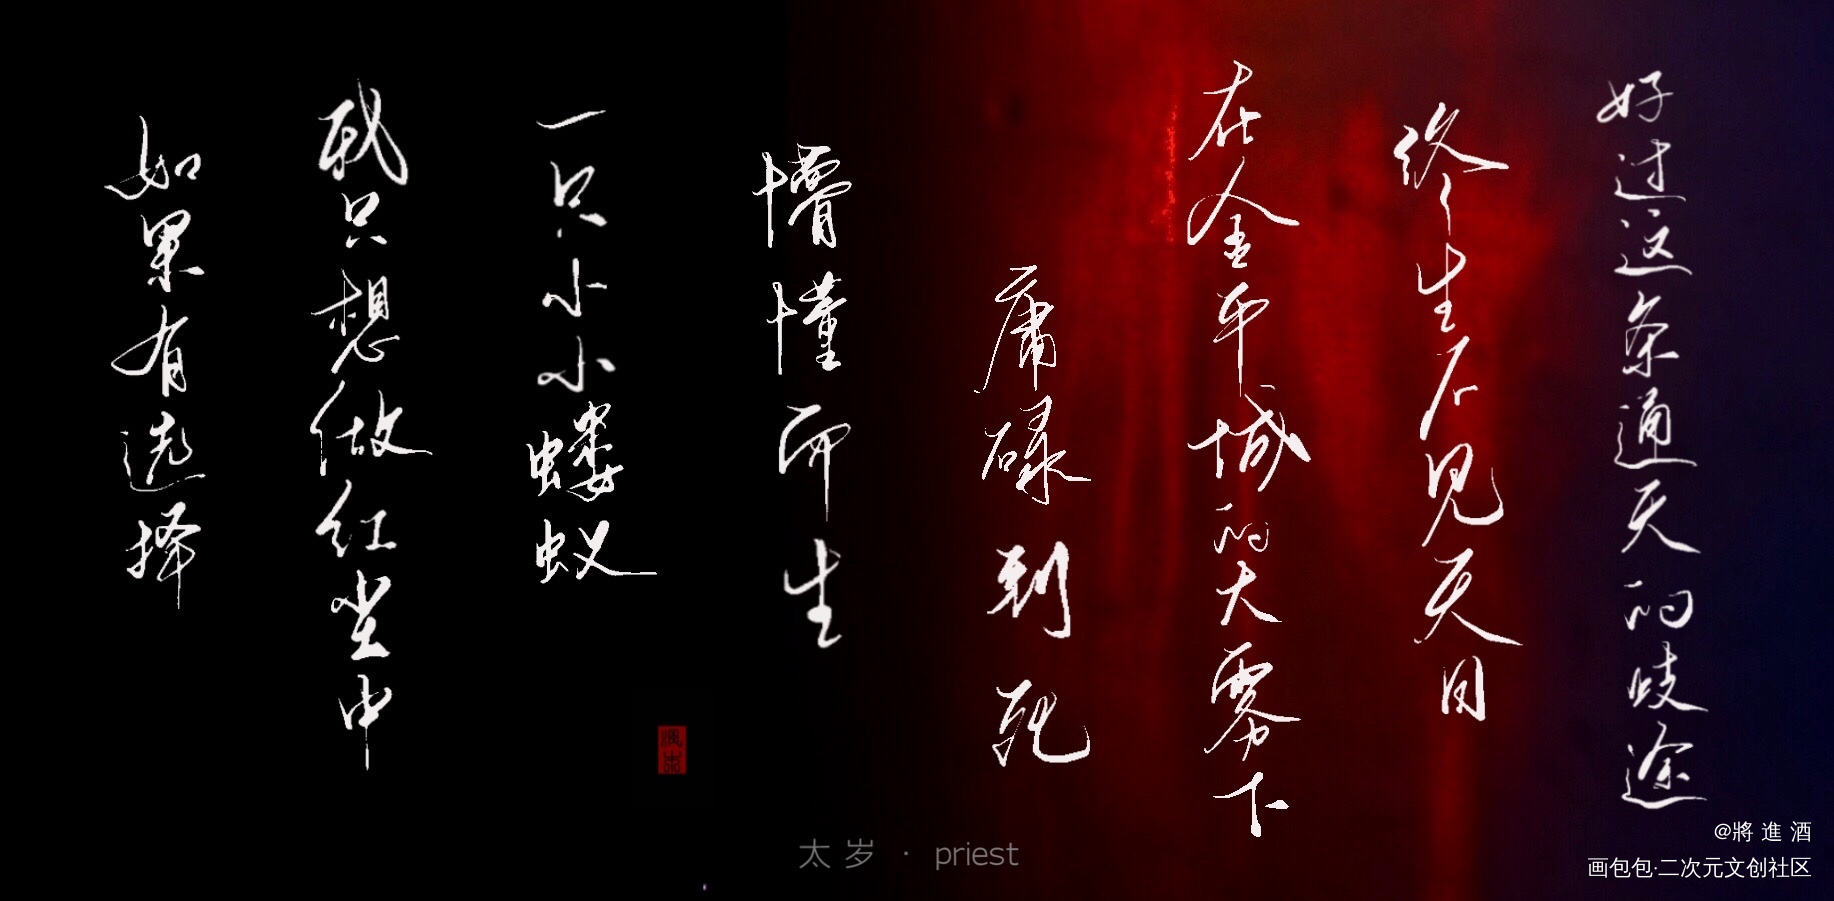 如果有选择
我只想做红尘中
一只小小蝼蚁
懵懂而生
庸碌到死
在金平城的大雾下
终生不见天日
好过这条通天的歧途
太岁 · priest
@將進酒
画包包·二次元文创社区